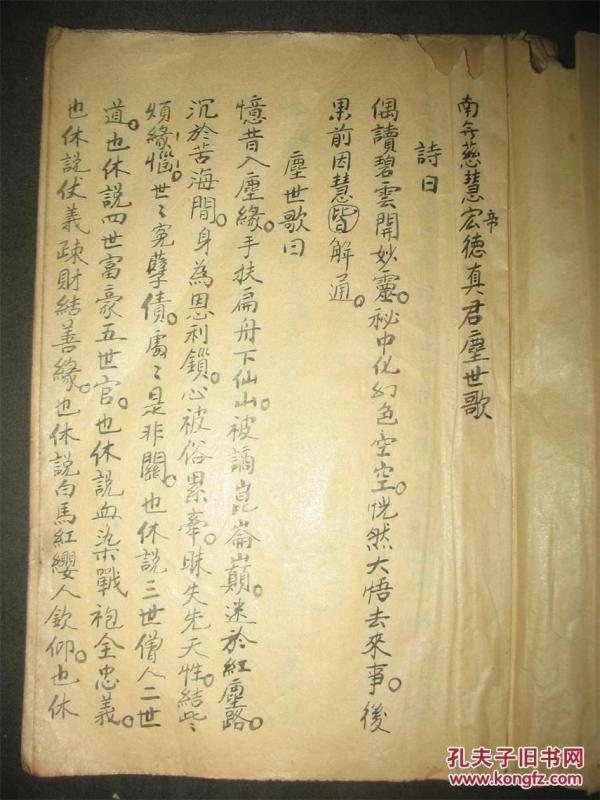 南無慈慧帝宏德真君塵世歌
詩曰
偶讀碧雲開妙靈。秘中化幻色空空。恍然大悟去來事。後
果前因慧皆解通。
塵世歌曰
憶昔入塵緣。手扶扁舟下仙山。被謫崑崙巔。迷於紅塵路。
沉於苦海間。身為恩利鎖。心被俗累牽。昧失先天性。結些
煩緣惱。世々冤孽債。處々是非關。也休説三世僧人二世
道。也休説四世富豪五世官。也休説血染戰袍全忠義。
也休説伏義疎財結善緣。也休説白馬紅纓人欽仰。也休
孔夫子旧书网
www.kongfz.com